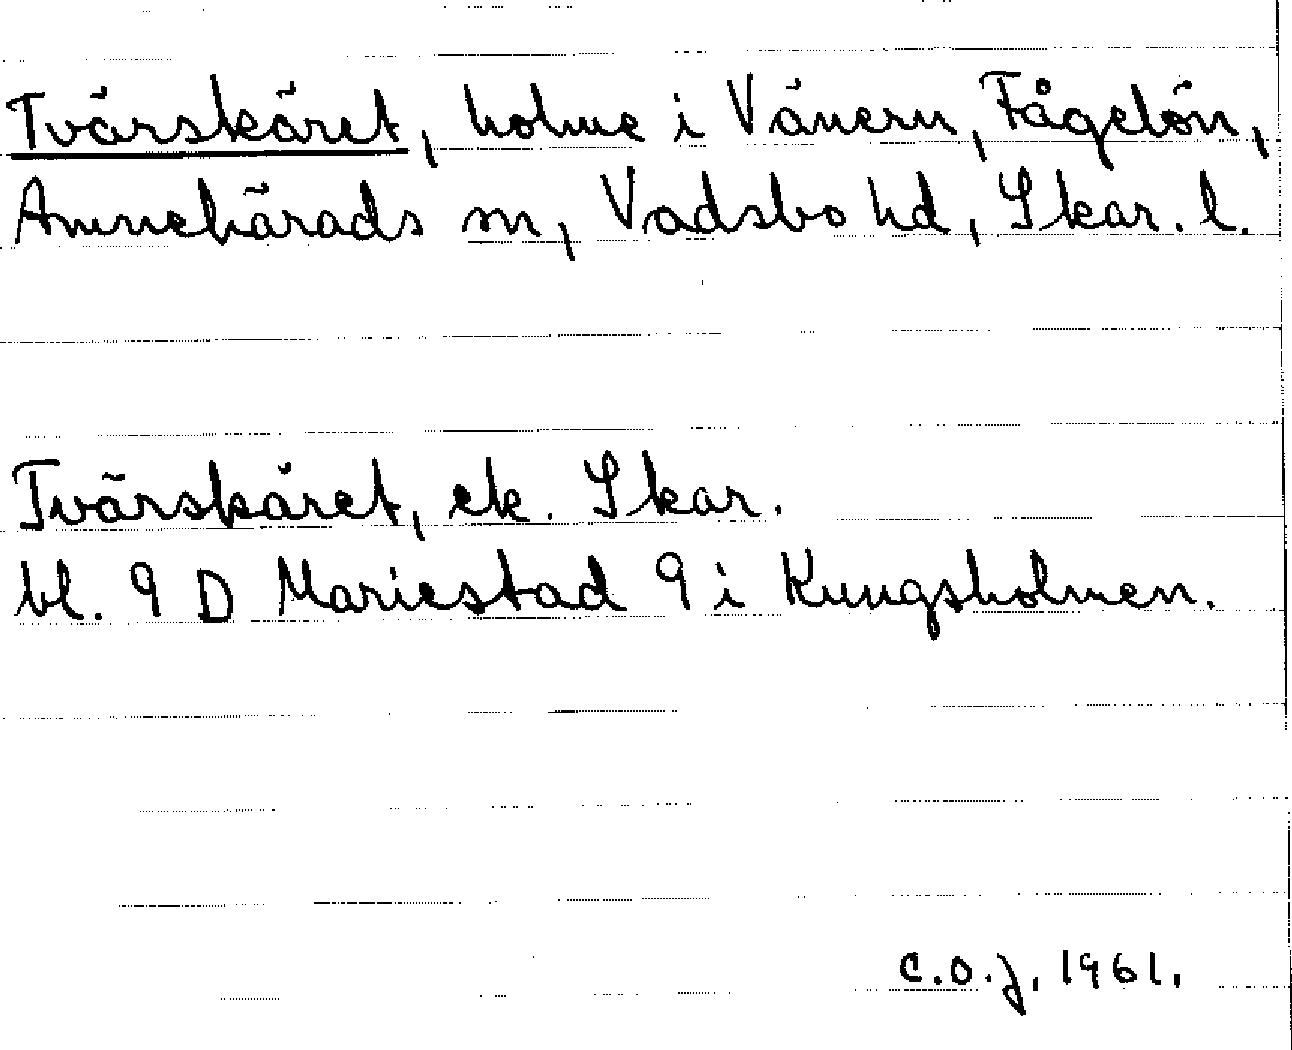 Tvärskäret, holme i Vänern, Fågelön,
Amnehärads sn, Vadsbo hd, Skar. l.
Tvärskäret, ek. Skar.
bl. 9 D Mariestad 9 i Kungsholmen.
C.O.J. 1961.